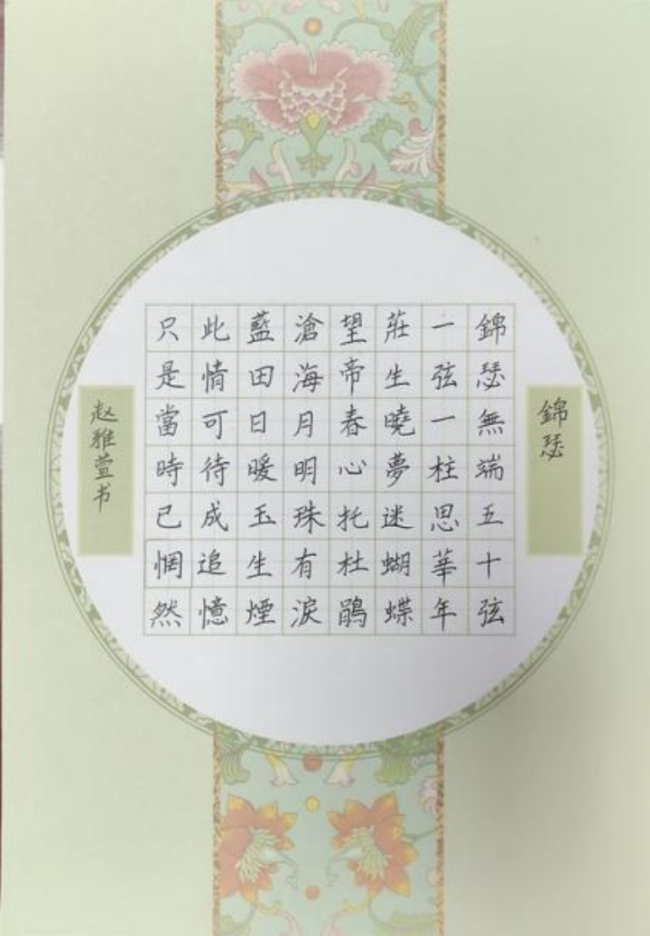 錦瑟
錦瑟無端五十弦
一弦一柱思華年
莊生曉夢迷蝴蝶
望帝春心托杜鵑
滄海月明珠有淚
藍田日暖玉生煙
此情可待成追憶
只是當時已惘然
赵雅萱书